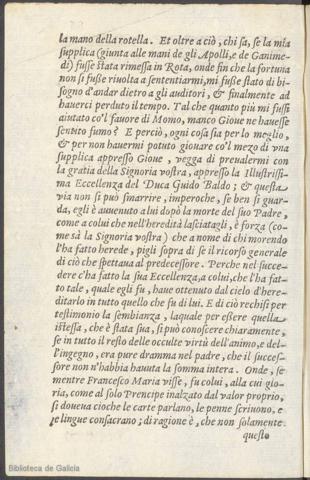 la mano della rotella. Et oltre a ciò, chi sa, se la mia
supplica (giunta alle mani de gli Apolli, e de Ganime-
di) fusse stata rimessa in Rota, onde fin che la fortuna
non si fusse riuolta a sententiarmi, mi fuße stato di bi-
sogno d'andar dietro a gli auditori, & finalmente ad
hauerci perduto il tempo. Tal che quanto più mi fussi
aiutato co'l fauore di Momo, manco Gioue ne hauesse
sentuto fumo? E perciò, ogni cosa sia per lo meglio,
& per non hauermi potuto giouare co'l mezo di vna
supplica appresso Gioue, vegga di preualermi con
la gratia della Signoria vostra, appresso la Illustrissi
ma Eccellenza del Duca Guido Baldo; & questa
via non si può smarrire, imperoche, se ben si guar-
da, egli è auuenuto a lui dopò la morte del suo Padre,
come a colui che nell'heredità lasciatagli, è forza (co-
me sà la Signoria vostra) che a nome di chi morendo
l'ha fatto herede, pigli sopra di se il ricorso generale
di ciò che spettaua al predecessore. Perche nel succe-
dere c'ha fatto la sua Eccellenza, a colui, che l'ha fat-
to tale, quale egli fu, haue ottenuto dal cielo d'here-
ditarlo in tutto quello che fu di lui. E di ciò rechisi per
testimonio la sembianza, laquale per essere quella
istessa, che è stata sua, si può conoscere chiaramente,
se in tutto il resto delle occulte virtù dell'animo, e del-
l'ingegno, era pure dramma nel padre, che il succes-
sore non n'habbia hauuta la somma intera. Onde, se
mentre Francesco Maria visse, fu colui, alla cui glo-
ria, come al solo Prencipe inalzato dal valor proprio,
si doueua cioche le carte parlano, le penne scriuono, e
le lingue consacrano; di ragione è, che non solamente
questo
Biblioteca de Galicia